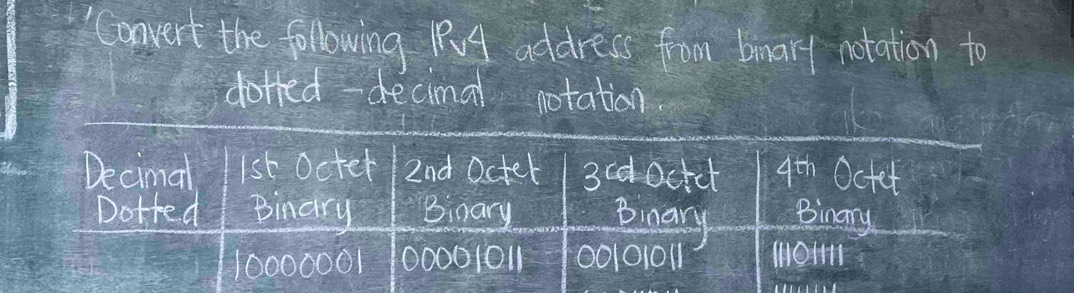 "Convert the following IPv4 address from binary notation to
dotted-decimal notation.
Decimal Dotted | 1st Octet Binary | 2nd Octet Binary | 3rd Octet Binary | 4th Octet Binary
10000001 | 00001011 | 00101011 | 11101111